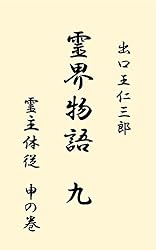 出口王仁三郎
霊界物語 九
霊主体従 申の巻